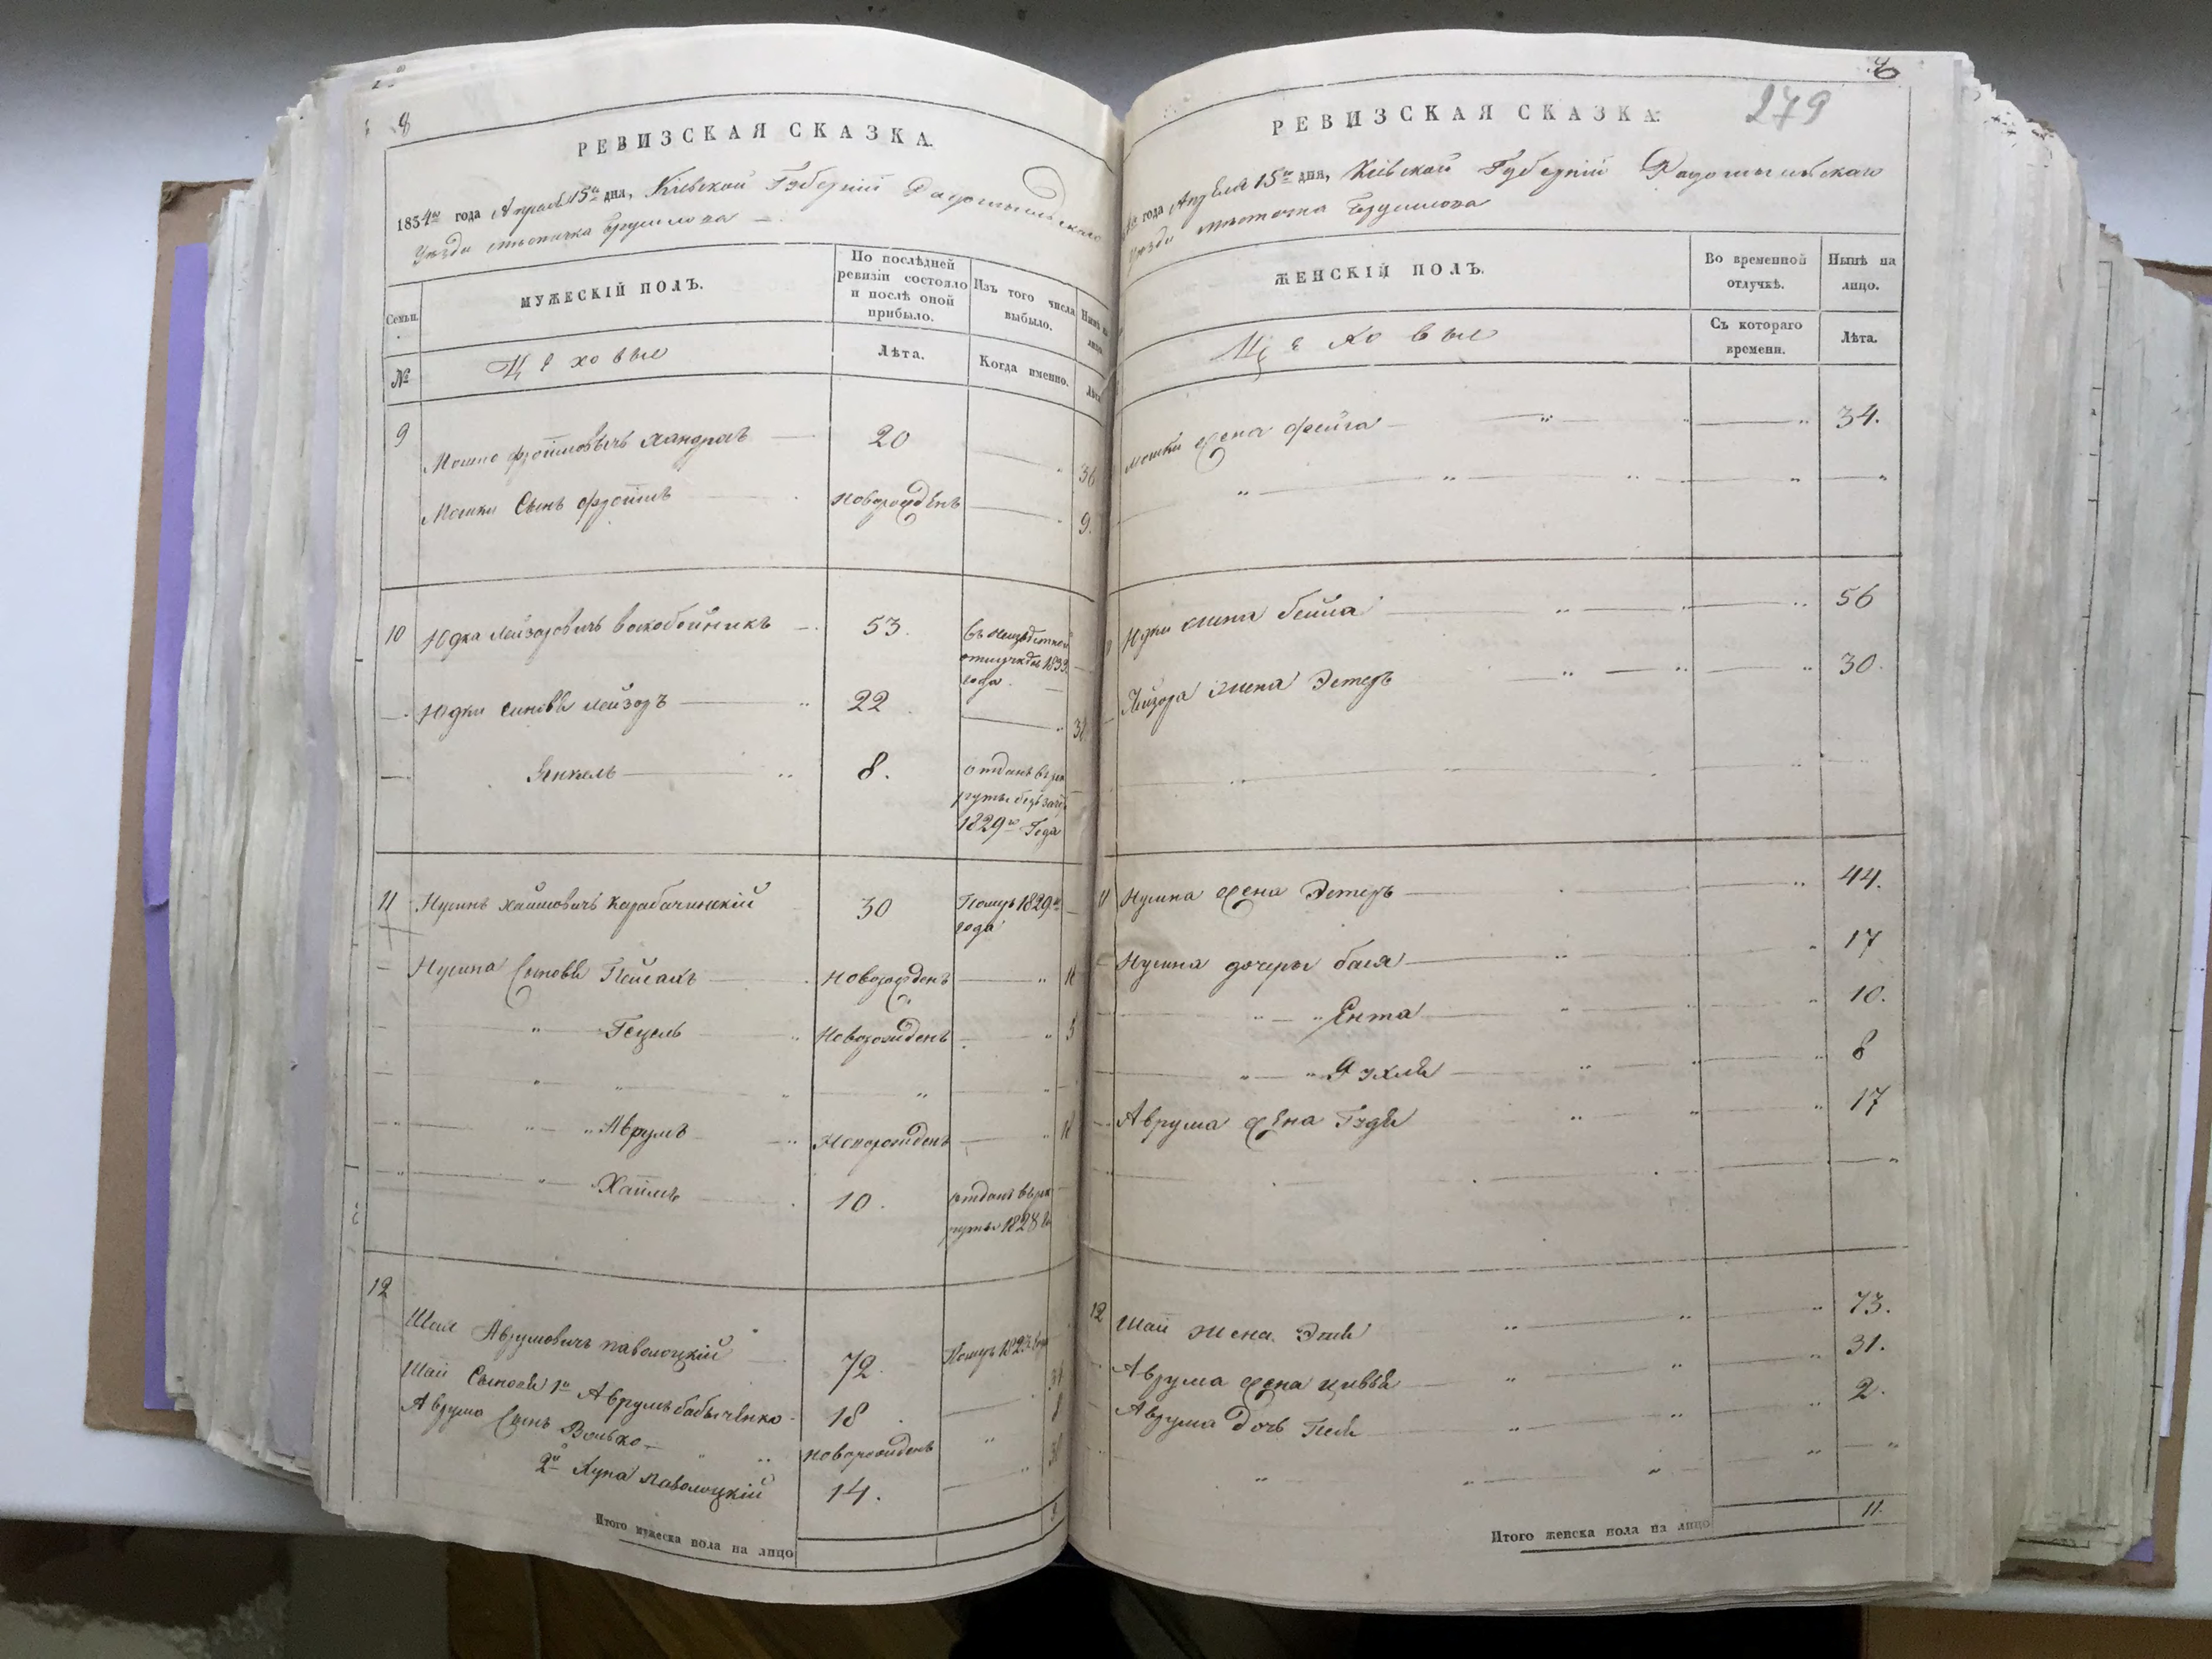 8
РЕВИЗСКАЯ СКАЗКА.
1834го года Апреля 15го дня, Кіевской Губерніи Радомысльскаго
Уезда местечка Брусилова
Семьи.
МУЖЕСКІЙ ПОЛЪ.
По послѣдней ревизіи состояло и послѣ оной прибыло.
Изъ того числа выбыло.
Нынѣ на лицо.
№
Цеховые
Лѣта.
Когда именно.
Лѣта
9
Мошко Фроимовичъ 20
Мошки Сынъ Фроимъ Новорожденъ 9.
10 Юдка Лейзоровичъ Воскобойникъ 53. въ неизвестной отлучке 1833 года.
Юдки Синовя Лейзоръ 22
Янкель 8. отданъ въ рекруты безъ 1829го Года
11 Нусинъ Хаимовичъ Карабачинскій 30 Померъ 1829го года
Нусина Сыновя Пейсахъ Новорожденъ
Гецель Новорожденъ 5
Аврумъ Новорожденъ
Хаимъ 10. отданъ в рекруты 1828
12
Шая Аврумовичъ Паволоцкій 72. Померъ
Шаи Сынове 1й Аврумъ Бабиченко 18
Аврума Сынъ Волько Новорожденъ
2й Паволоцкій 14.
Итого мужеска пола на лицо
279
РЕВИЗСКАЯ СКАЗКА.
года Апреля 15го дня, Кіевской Губерніи Радомысльскаго
Уезда местечка Брусилова
ЖЕНСКІЙ ПОЛЪ.
Во временной отлучкѣ.
Нынѣ на лицо.
Цеховые
Съ котораго времени.
Лѣта.
Мошки жена Фейга 34.
Юдки жена Бейла 56
Лейзора жена Эстеръ 30.
11 Нусина жена Эстеръ 44.
Нусина дочери Бася 17
Ента 10.
Рухля 8
Аврума жена 17
12 Шаи жена 73.
Аврума жена Цивья 31.
Аврума дочь 2.
Итого женска пола на лицо 11.